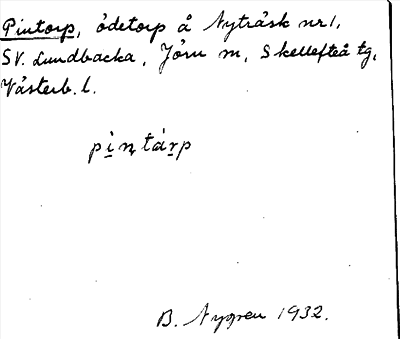 Pintorp, ödetorp å Nyträsk nr 1,
SV. Lundbacka, Jörn m, Skellefteå tg,
Västerb. l.
pìṇtárp
B. Nygren 1932.